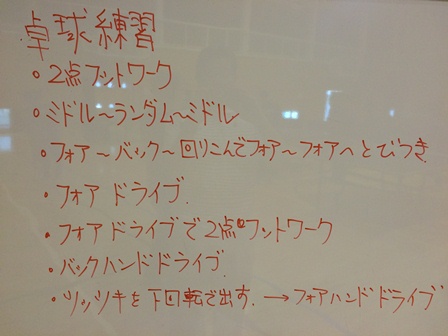 卓球練習
・2点フットワーク
・ミドル〜ランダム〜ミドル
・フォア〜バック〜回りこんでフォア〜フォアへとびつき
・フォアドライブ
・フォアドライブで2点フットワーク
・バックハンドドライブ
・ツッツキを下回転で出す。→フォアハンドドライブ